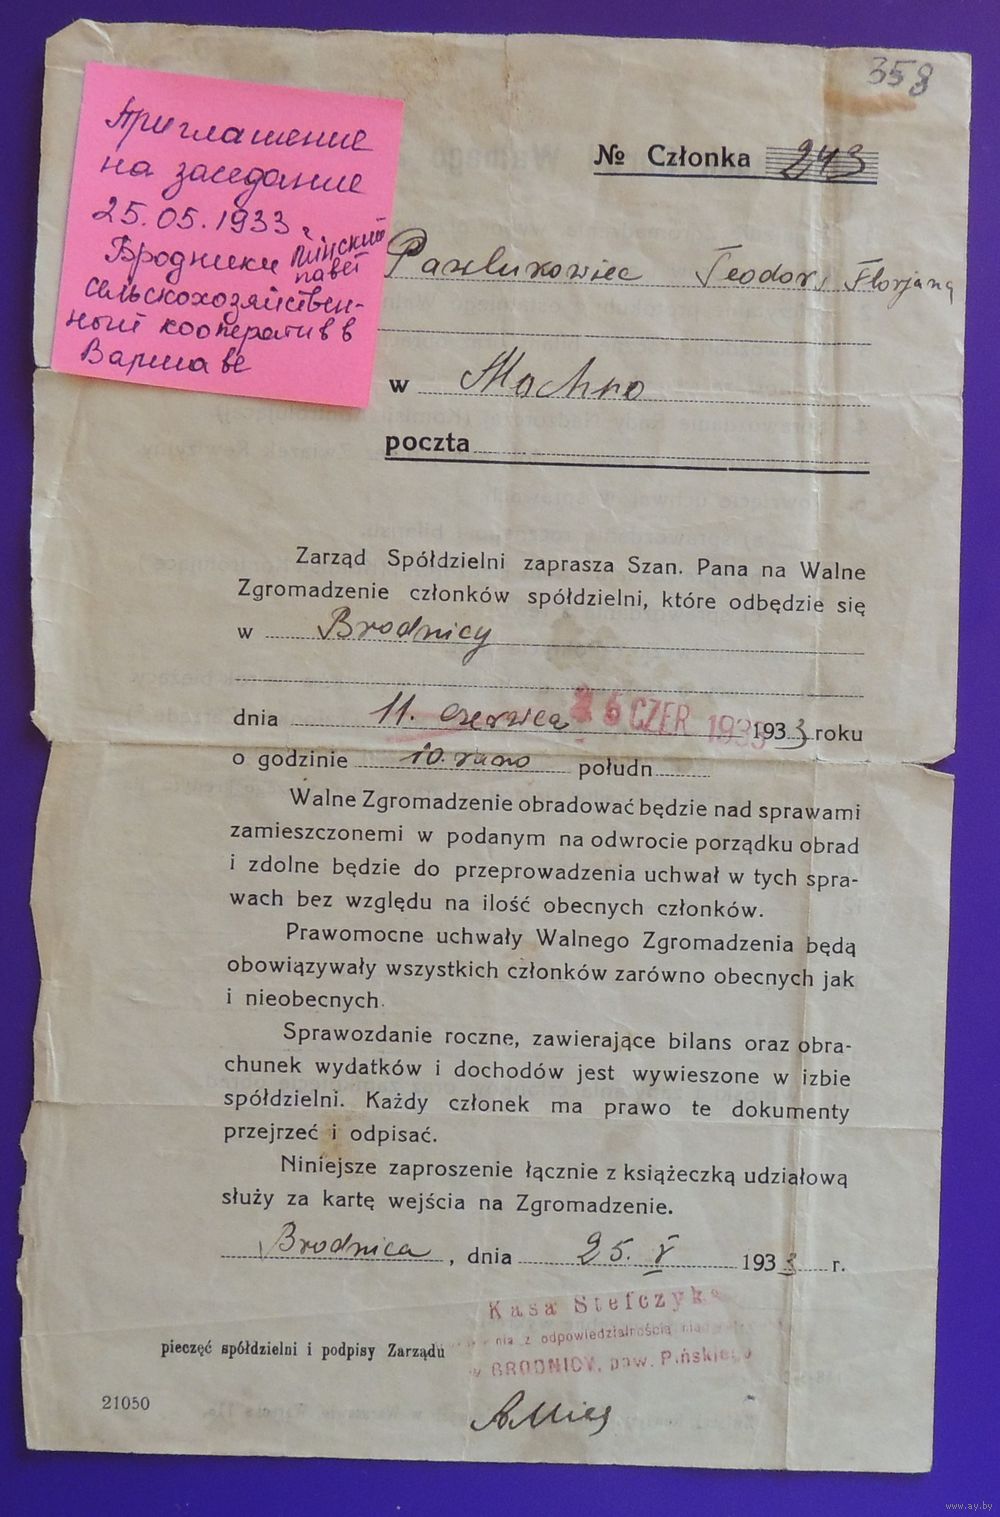 358
Приглашение
на заседание
25.05.1933 г.
Бродники Пинский
павет
сельскохозяйствен-
ный кооператив в
Варшаве
№ Członka 243
Pawlukowiec Teodor, Florjana
w Mochro
poczta
Zarząd Spółdzielni zaprasza Szan. Pana na Walne
Zgromadzenie członków spółdzielni, które odbędzie się
w Brodnicy
dnia 11. czerwca 1933 roku
26 CZER 1933
o godzinie 10. rano połudn.
Walne Zgromadzenie obradować będzie nad sprawami
zamieszczonemi w podanym na odwrocie porządku obrad
i zdolne będzie do przeprowadzenia uchwał w tych spra-
wach bez względu na ilość obecnych członków.
Prawomocne uchwały Walnego Zgromadzenia będą
obowiązywały wszystkich członków zarówno obecnych jak
i nieobecnych.
Sprawozdanie roczne, zawierające bilans oraz obra-
chunek wydatków i dochodów jest wywieszone w izbie
spółdzielni. Każdy członek ma prawo te dokumenty
przejrzeć i odpisać.
Niniejsze zaproszenie łącznie z książeczką udziałową
służy za kartę wejścia na Zgromadzenie.
Brodnica, dnia 25. V 1933 r.
Kasa Stefczyka
z odpowiedzialnością
w BRODNICY, pow. Pińskiego
pieczęć spółdzielni i podpisy Zarządu
21050
www.ay.by